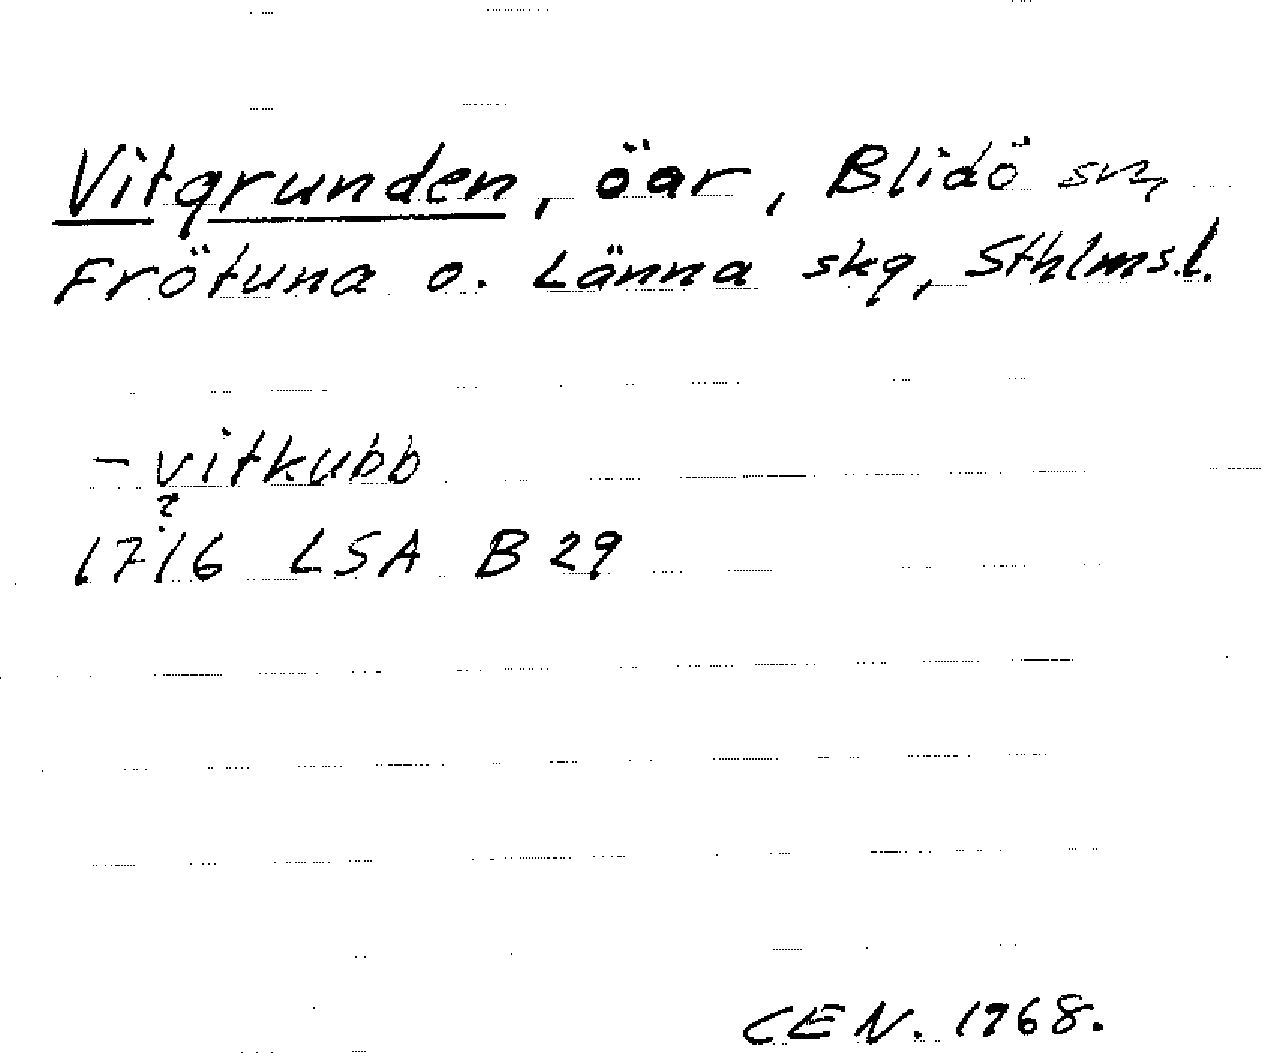 Vitgrunden, öar, Blidö sn,
Frötuna o. Länna skg, Sthlms.l.
- vitkubb
?
1716 LSA B 29
CEN. 1968.